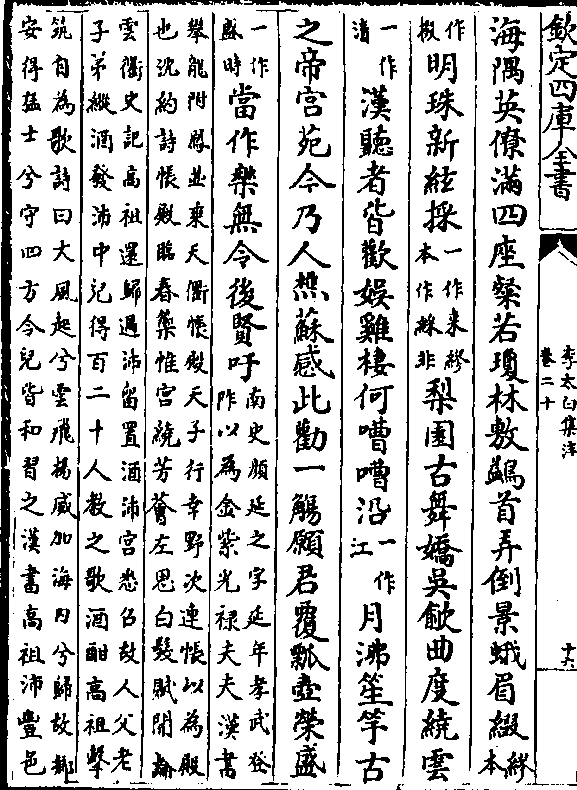 欽定四庫全書
李太白集注
卷二十
十六
海隅英僚滿四座粲若瓊林敷鷁首弄倒景蛾眉綴繆本
作掇明珠新絃採一作来繆本作綵非梨園古舞嬌吳歈曲度繞雲
一作清漢聽者皆歡娛雞棲何嘈嘈沿一作江月沸笙竽古
之帝宫苑今乃人樵蘇感此勸一觴願君覆瓢壺榮盛
一作盛時當作樂無令後賢吁南史顔延之字延年孝武登
阼以為金紫光禄夫夫漢書
攀龍附鳳並乗天衢帳殿天子行幸野次連帳以為殿
也沈約詩帳殿臨春籞惟宫繞芳薈左思白髮賦開論
雲衢史記高祖還歸過沛留置酒沛宫悉召故人父老
子弟縱酒發沛中兒得百二十人教之歌酒酣高祖擊
筑自為歌詩曰大風起兮雲飛揚威加海内兮歸故鄉
安得猛士兮守四方令兒皆和習之漢書高祖沛豐邑